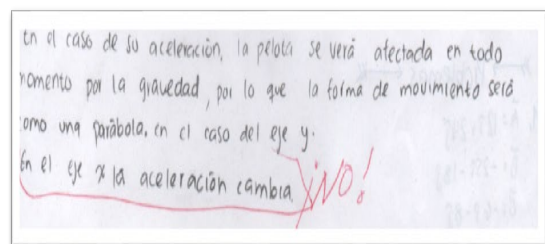 En el caso de su aceleración, la pelota se verá afectada en todo
momento por la gravedad, por lo que la forma de movimiento será
como una parábola, en el caso del eje y.
En el eje x la aceleración cambia ¡NO!